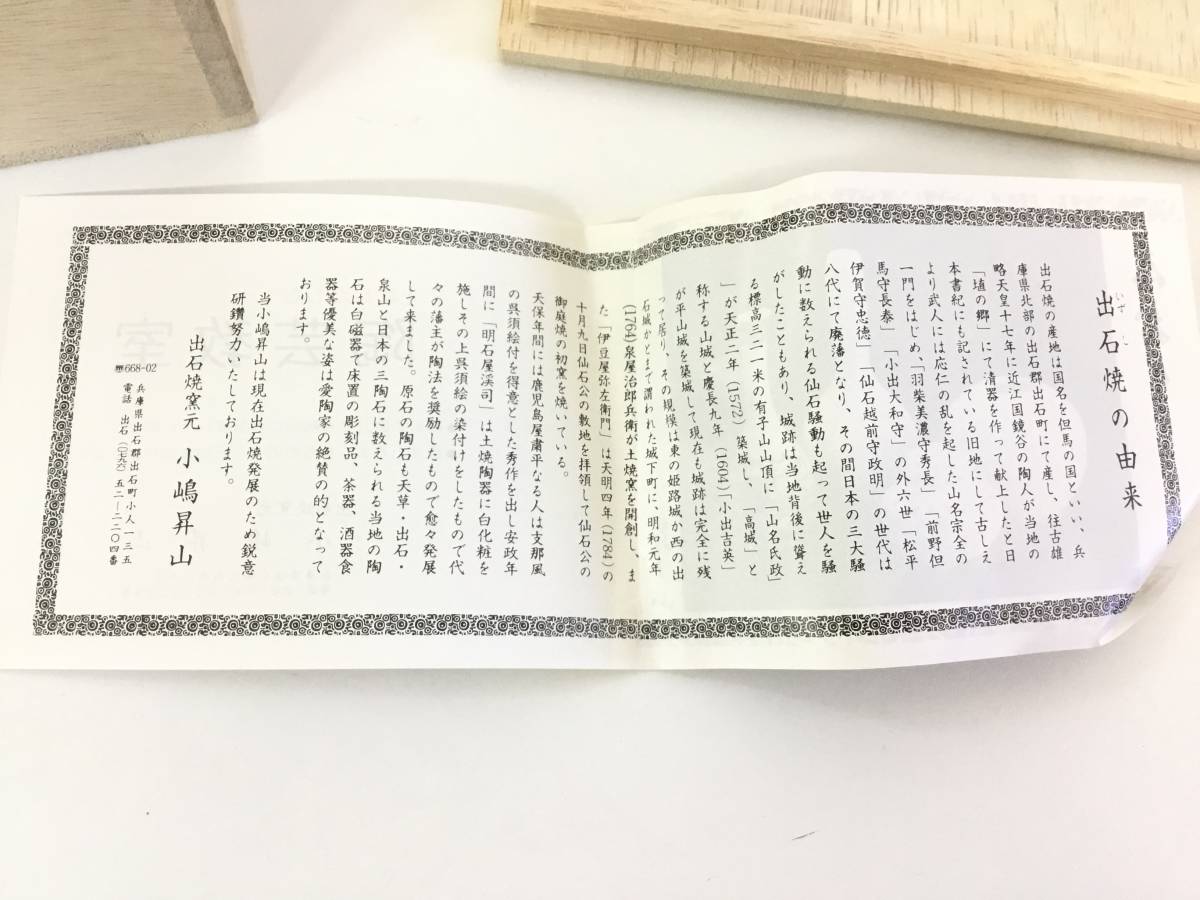 出石焼の由来
いずし
出石焼の産地は国名を但馬の国といい、兵
庫県北部の出石郡出石町にて産し、往古雄
略天皇十七年に近江国鏡谷の陶人が当地の
「埴の郷」にて清器を作って献上したと日
本書紀にも記されている旧地にして古しえ
より武人には応仁の乱を起した山名宗全の
一門をはじめ、「羽柴美濃守秀長」「前野但
馬守長泰」「小出大和守」の外六世「松平
伊賀守忠徳」「仙石越前守政明」の世代は
八代にて廃藩となり、その間日本の三大騒
動に数えられる仙石騒動も起って世人を騒
がしたこともあり、城跡は当地背後に聳え
る標高三二一米の有子山山頂に「山名氏政
」が天正二年(1572)築城し、「高城」と
称する山城と慶長九年(1604)「小出吉英」
が平山城を築城して現在も城跡は完全に残
って居り、その規模は東の姫路城か西の出
石城かとまで謂われた城下町に、明和元年
(1764)泉屋治郎兵衛が土焼窯を開創し、ま
た「伊豆屋弥左衛門」は天明四年(1784)の
十月九日仙石公の敷地を拝領して仙石公の
御庭焼の初窯を焼いている。
天保年間には鹿児島屋粛平なる人は支那風
の呉須絵付を得意とした秀作を出し安政年
間に「明石屋渓司」は土焼陶器に白化粧を
施しその上呉須絵の染付けをしたもので代
々の藩主が陶法を奨励したもので愈々発展
して来ました。原石の陶石も天草・出石・
泉山と日本の三陶石に数えられる当地の陶
石は白磁器で床置の彫刻品、茶器、酒器食
器等優美な姿は愛陶家の絶賛の的となって
おります。
当小嶋昇山は現在出石焼発展のため鋭意
研鑽努力いたしております。
出石焼窯元 小嶋昇山
〠668-02 兵庫県出石郡出石町小人一三五
電話 出石(〇七九六)五二―二二〇四番